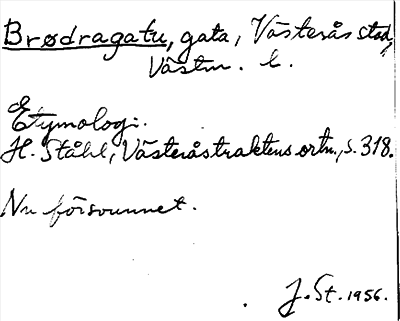 Brødragatu, gata, Västerås stad,
Västm. l.
Etymologi.
H. Ståhl, Västeråstraktens ortn., s. 318.
Nu försvunnet.
J. St. 1956.